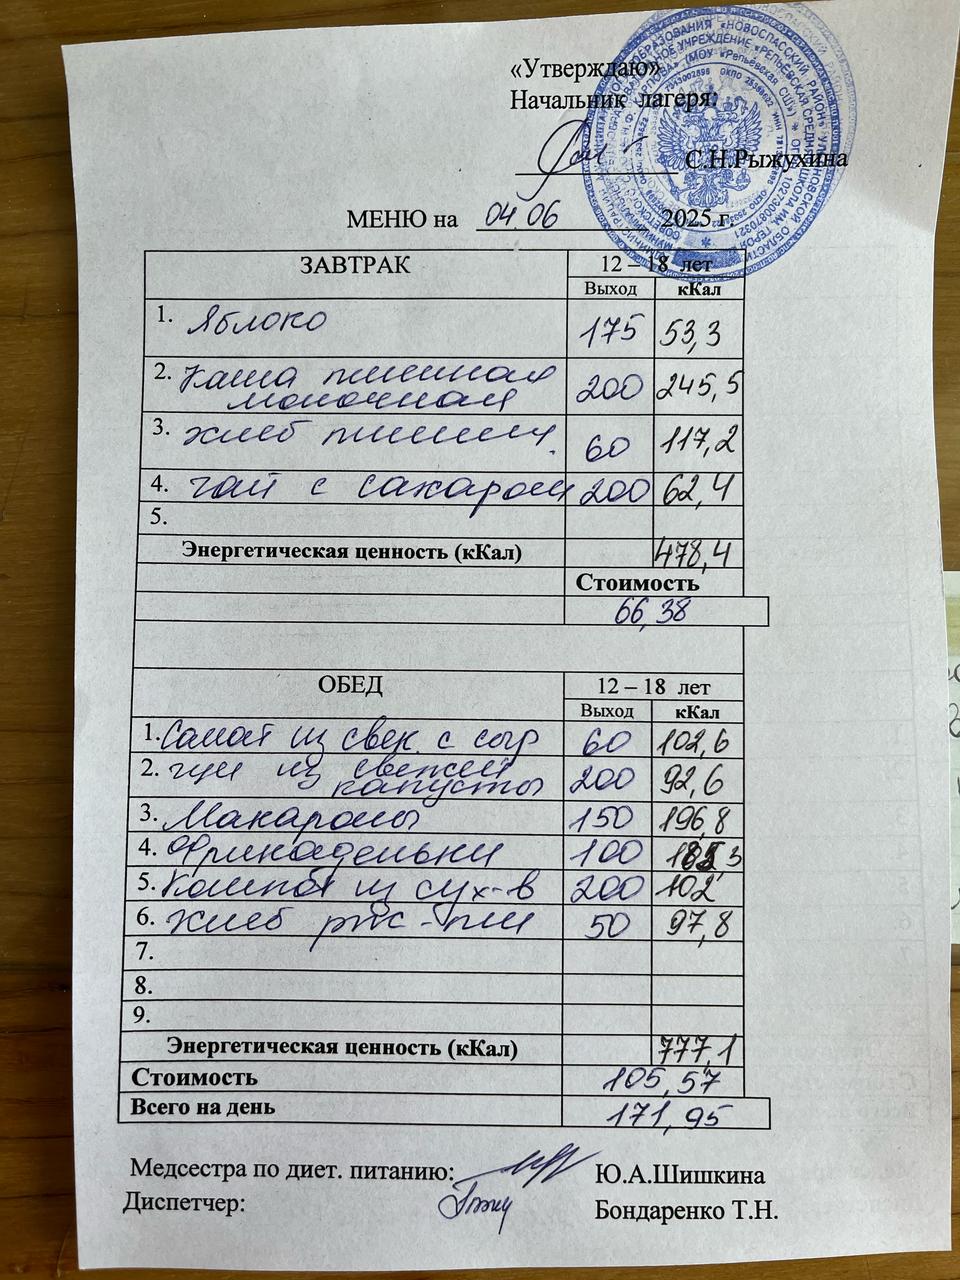 «Утверждаю»
Начальник лагеря:
С.Н.Рыжухина
МЕНЮ на 04.06 2025 г.
ЗАВТРАК 12 – 18 лет
Выход кКал
1. Яблоко 175 53,3
2. Каша пшенная молочная 200 245,5
3. хлеб пшенич. 60 117,2
4. чай с сахаром 200 62,4
5.
Энергетическая ценность (кКал) 478,4
Стоимость
66,38
ОБЕД 12 – 18 лет
Выход кКал
1. Салат из свек. с сыр 60 102,6
2. щи из свежей капусты 200 92,6
3. Макароны 150 196,8
4. Фрикадельки 100
5. Компот из сух-в 200 102
6. хлеб рж-пш 50 97,8
7.
8.
9.
Энергетическая ценность (кКал) 777,1
Стоимость 105,57
Всего на день 171,95
Медсестра по диет. питанию: Ю.А.Шишкина
Диспетчер: Бондаренко Т.Н.